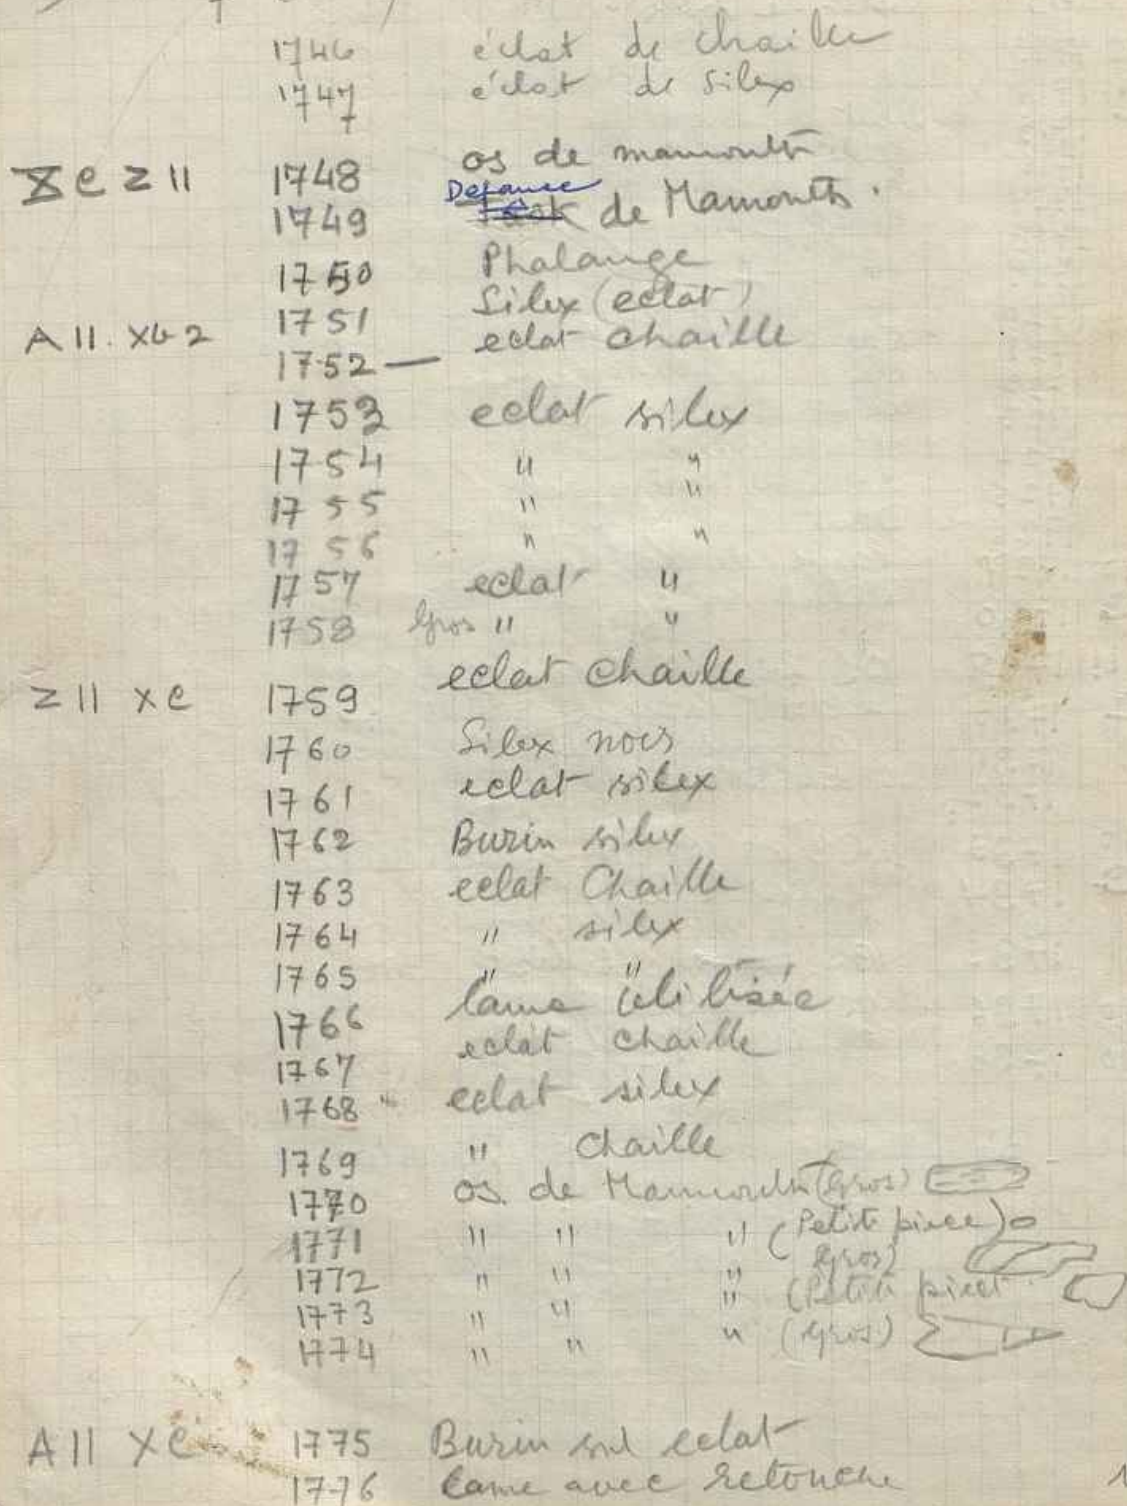 1746 éclat de chaille
1747 éclat de silex
Xe Z II 1748 os de mamouth
1749 Defance de Mamouths.
1750 Phalange
1751 Silex (eclat)
A II. Xb2 1752 — eclat chaille
1753 eclat silex
1754 " "
1755 " "
1756 " "
1757 eclat "
1758 Gros " "
Z II Xe 1759 eclat chaille
1760 Silex noir
1761 eclat silex
1762 Burin silex
1763 eclat Chaille
1764 " silex
1765 " "
1766 lame utilisée
1767 eclat chaille
1768 " eclat silex
1769 " chaille
1770 os de Mammouth (gros)
1771 " " " (Petite piece)
1772 " " " (gros)
1773 " " " (Petite piece
1774 " " " (gros)
A II Xe 1775 Burin sur eclat
1776 lame avec retouche